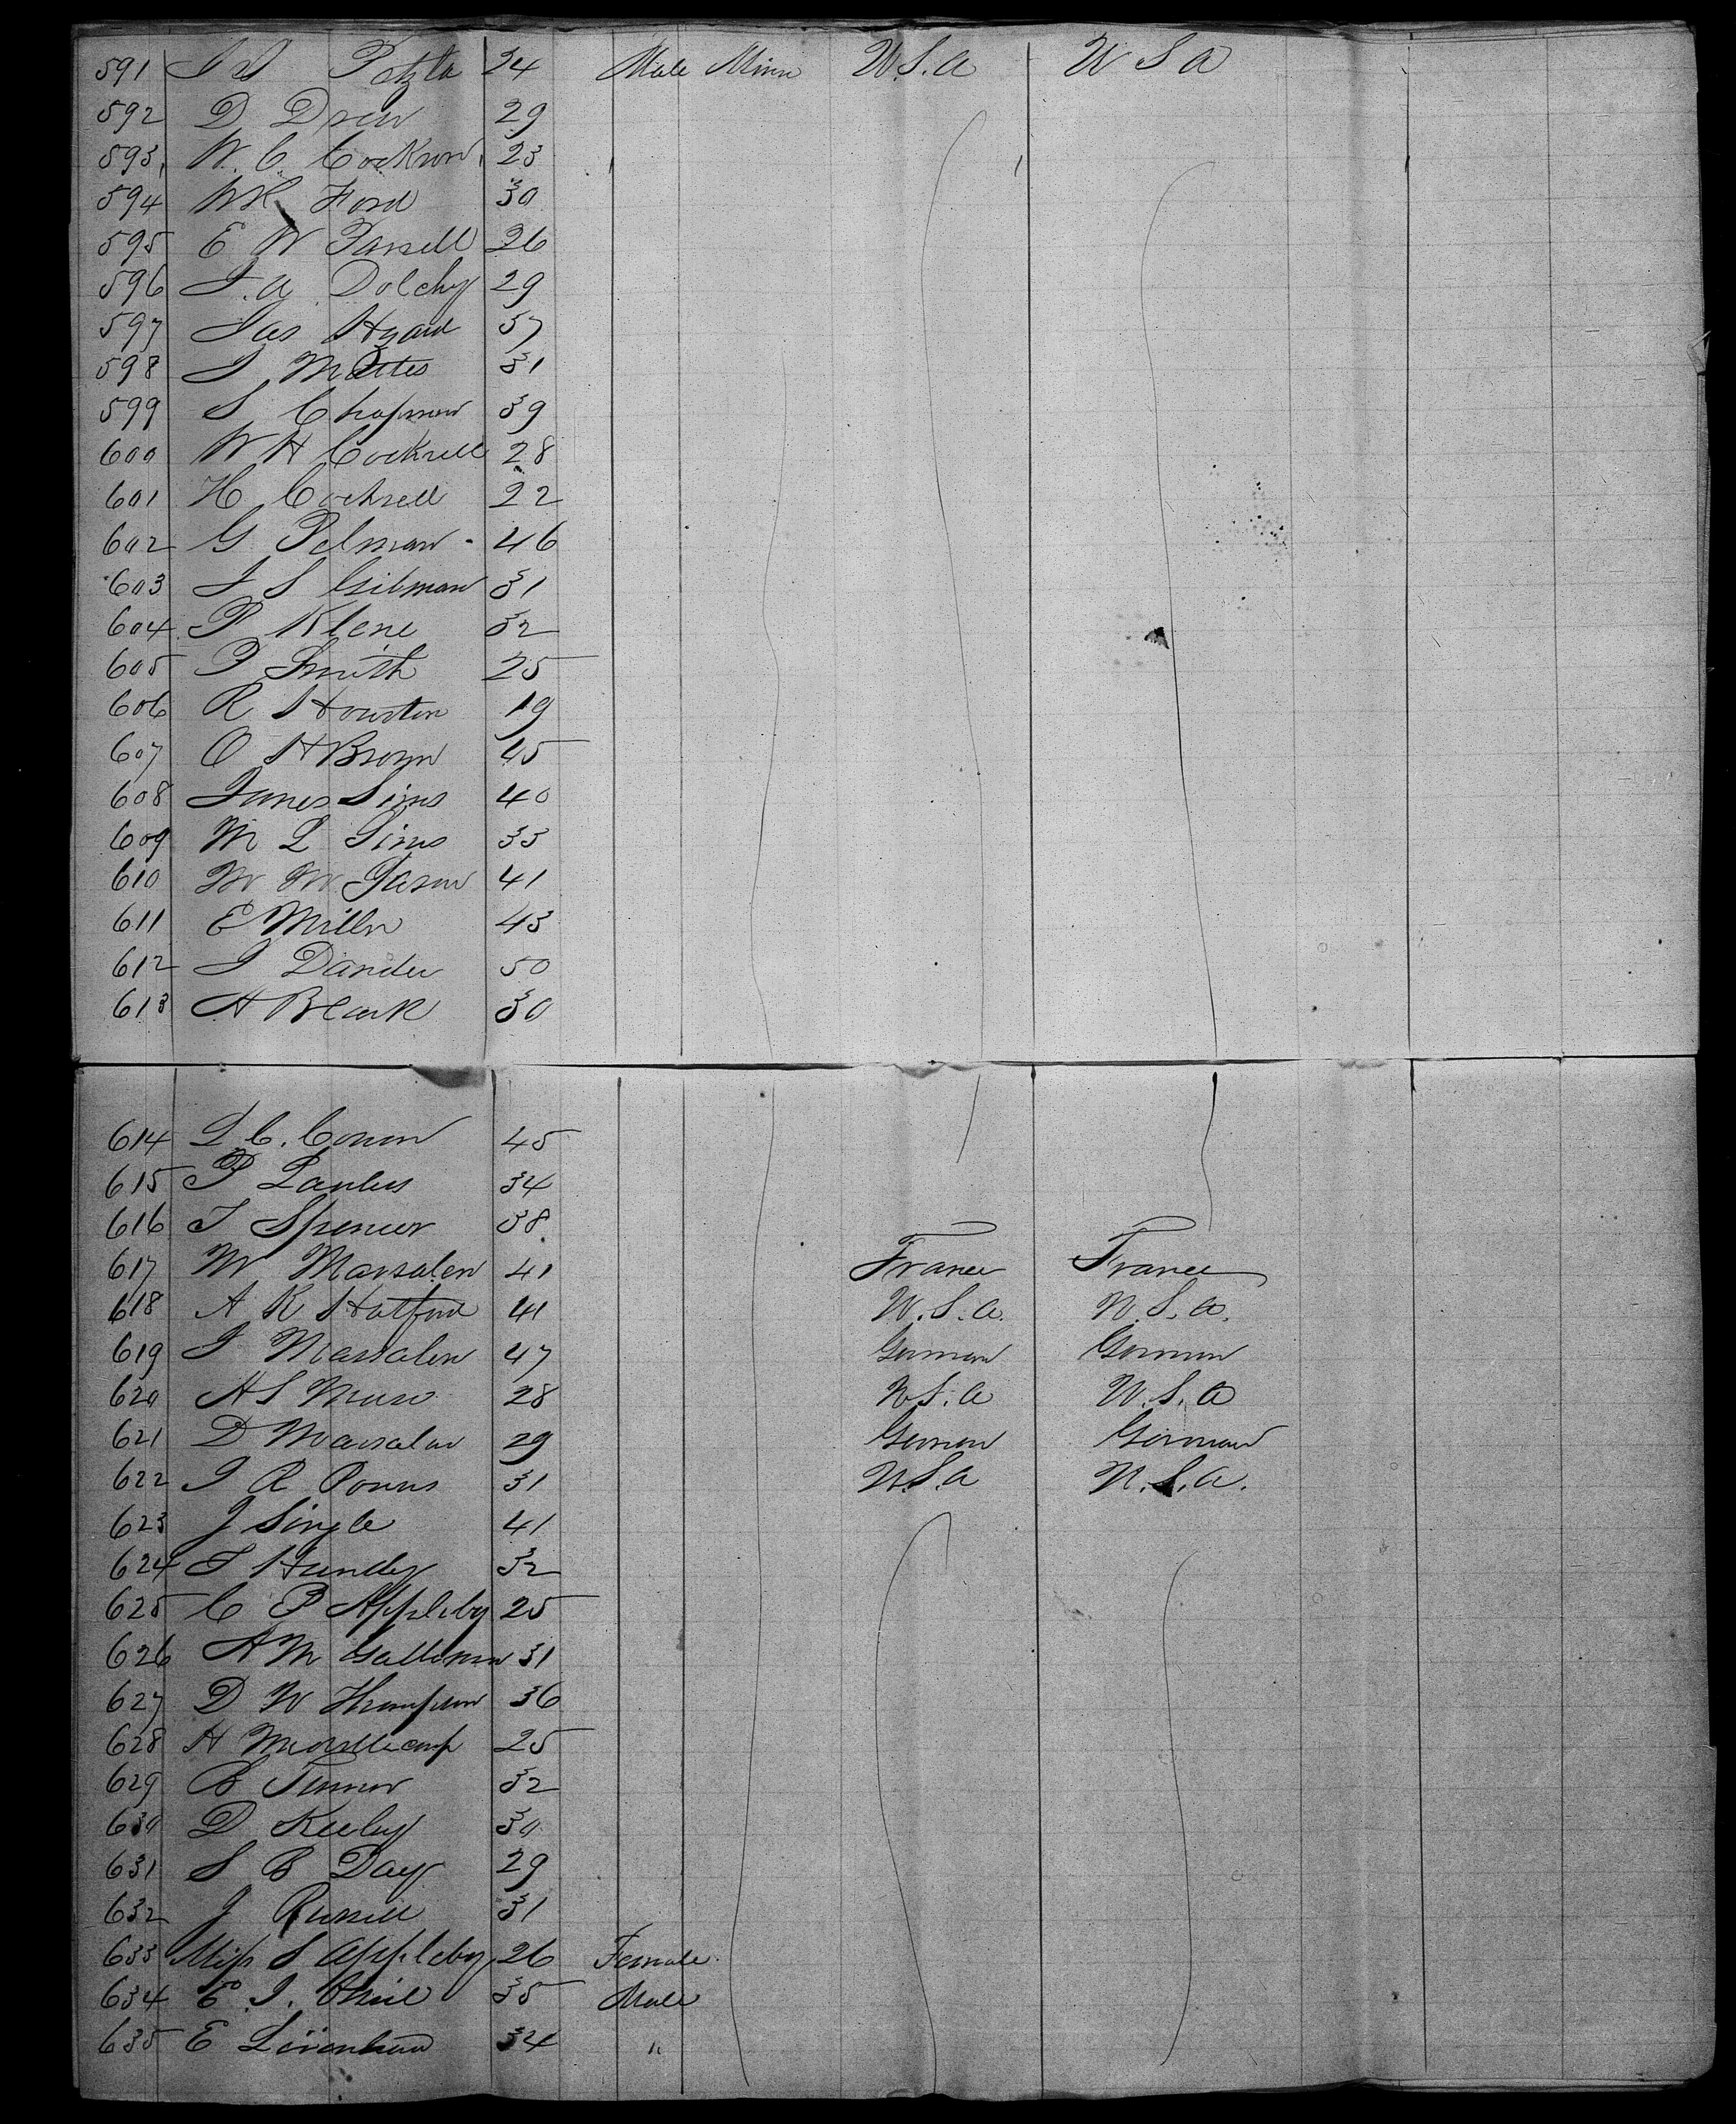 591 J S Petzla 24 Male Minn U.S.A U S A
592 D Drew 29
593 W. C. Cockron 23
594 W R Ford 30
595 E W Purnell 26
596 J. A. Dolchy 29
597 Jas Hyard 37
598 J Mattes 31
599 S Chapman 39
600 W H Cockrell 28
601 H Cockrell 22
602 G Pelman 46
603 J S Gibman 31
604 P Klene 32
605 P Smith 25
606 R Houston 19
607 O H Brown 45
608 James Sims 40
609 M L Sims 33
610 W W 41
611 E Miller 43
612 J Dander 50
613 H Black 30
614 L C. Conow 45
615 P Lanters 34
616 T Spencer 38
617 W Marsalen 41 France France
618 A K Hatford 41 U.S.A. U.S.A.
619 J Marsalen 47 German German
620 H S Muro 28 U.S.A U.S.A
621 D Marsalen 29 German German
622 J R Powns 31 U.S.A U.S.A.
623 J Single 41
624 T Hundley 32
625 C P Appleby 25
626 A M Galloman 31
627 D W Thompson 36
628 H 25
629 B Turner 32
630 D Keeley 30
631 S B Day 29
632 J Russell 31
633 Miss S Appleby 26 Female
634 E. J. 35 Male
635 E 34 "